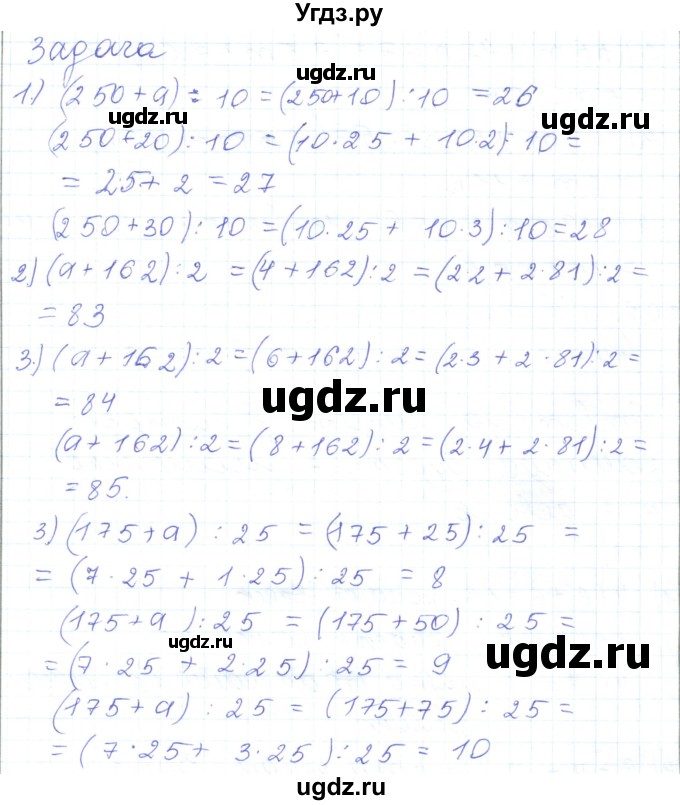 Угдз.ру
Задача
ugdz.ru
1) (250+a) : 10 = (250+10) : 10 = 26
ugdz.ru
ugdz.ru
(250+20) : 10 = (10·25 + 10·2) : 10 =
= 25+ 2 = 27
(250+30) : 10 = (10·25 + 10·3) : 10 = 28
2) (a+162) : 2 = (4+162) : 2 = (2 2 + 2·81) : 2 =
= 83
3.) (a+162) : 2 = (6+162) : 2 = (2·3 + 2·81) : 2 =
ugdz.ru
ugdz.ru
= 84
(a+162) : 2 = (8+162) : 2 = (2·4 + 2·81) : 2 =
= 85.
3) (175+a) : 25 = (175+25) : 25 =
= (7·25 + 1·25) : 25 = 8
(175+a) : 25 = (175+50) : 25 =
ugdz.ru
ugdz.ru
= (7·25 + 2·25) : 25 = 9
(175+a) : 25 = (175+75) : 25 =
= (7·25 + 3·25) : 25 = 10
ugdz.ru